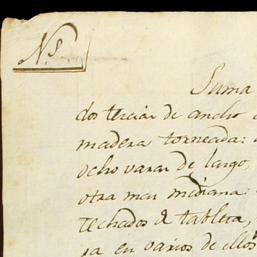 N.º
Suma
dos tercias de ancho
madera torneada:
ocho varas de largo,
otra mas mediana:
techados de tablera,
ya en varios de ellos